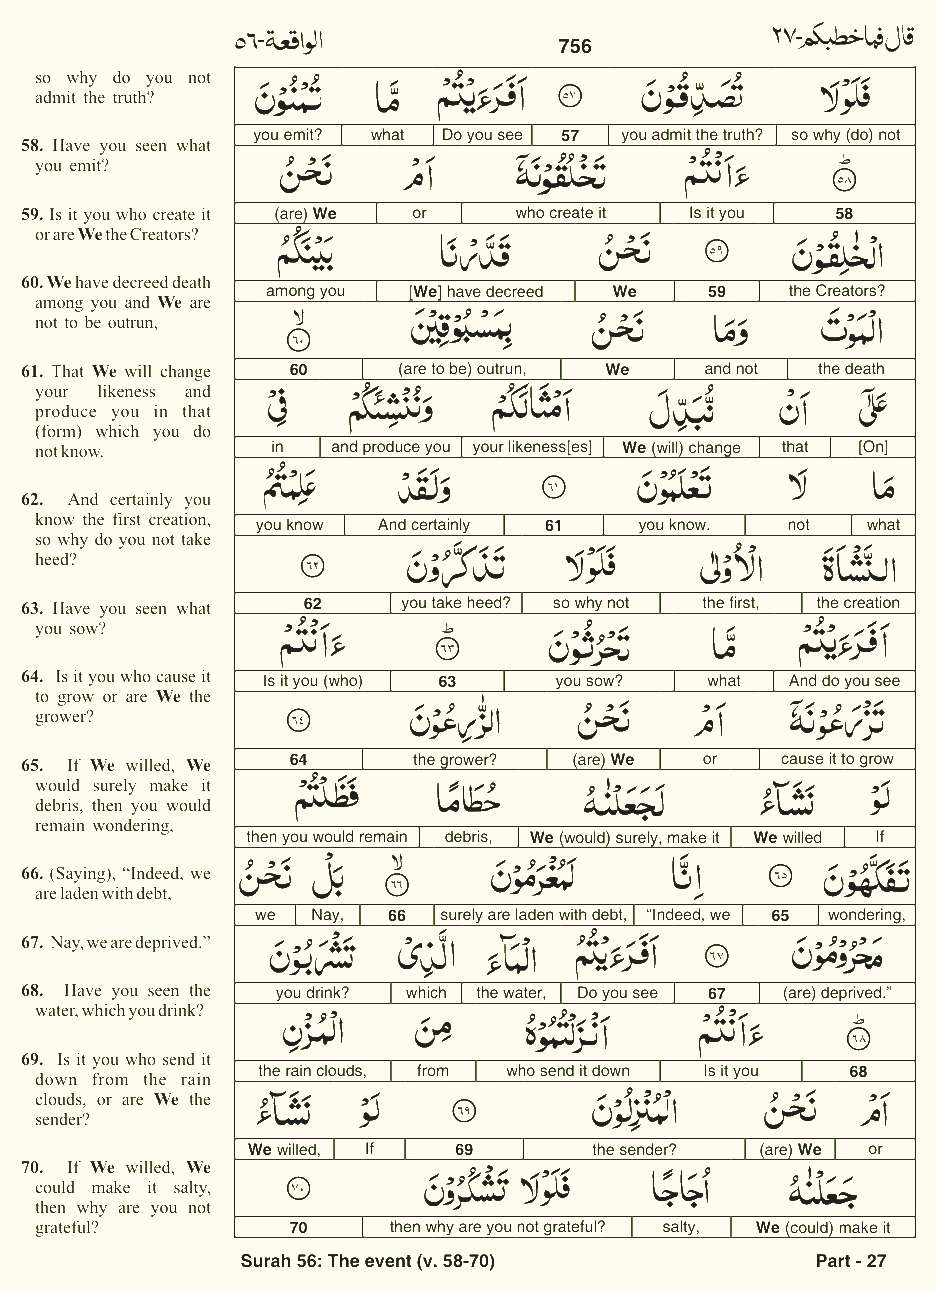 الواقعة-٥٦
756
قال فماخطبكم-٢٧
so why do you not
admit the truth?
58. Have you seen what
you emit?
59. Is it you who create it
or are We the Creators?
60. We have decreed death
among you and We are
not to be outrun,
61. That We will change
your likeness and
produce you in that
(form) which you do
not know.
62. And certainly you
know the first creation,
so why do you not take
heed?
63. Have you seen what
you sow?
64. Is it you who cause it
to grow or are We the
grower?
65. If We willed, We
would surely make it
debris, then you would
remain wondering,
66. (Saying), “Indeed, we
are laden with debt,
67. Nay, we are deprived.”
68. Have you seen the
water, which you drink?
69. Is it you who send it
down from the rain
clouds, or are We the
sender?
70. If We willed, We
could make it salty,
then why are you not
grateful?
فَلَوْلَا تُصَدِّقُوْنَ ٥٧ اَفَرَءَيْتُمْ مَّا تُمْنُوْنَ
you emit? what Do you see 57 you admit the truth? so why (do) not
٥٨ ؕ ءَاَنْتُمْ تَخْلُقُوْنَهٗۤ اَمْ نَحْنُ
(are) We or who create it Is it you 58
الْخٰلِقُوْنَ ٥٩ نَحْنُ قَدَّرْنَا بَيْنَكُمُ
among you [We] have decreed We 59 the Creators?
الْمَوْتَ وَمَا نَحْنُ بِمَسْبُوْقِيْنَ ٦٠ ۙ
60 (are to be) outrun, We and not the death
عَلٰۤى اَنْ نُّبَدِّلَ اَمْثَالَكُمْ وَنُنْشِئَكُمْ فِيْ
in and produce you your likeness[es] We (will) change that [On]
مَا لَا تَعْلَمُوْنَ ٦١ وَلَقَدْ عَلِمْتُمُ
you know And certainly 61 you know. not what
النَّشْاَةَ الْاُوْلٰى فَلَوْلَا تَذَكَّرُوْنَ ٦٢
62 you take heed? so why not the first, the creation
اَفَرَءَيْتُمْ مَّا تَحْرُثُوْنَ ٦٣ ؕ ءَاَنْتُمْ
Is it you (who) 63 you sow? what And do you see
تَزْرَعُوْنَهٗۤ اَمْ نَحْنُ الزّٰرِعُوْنَ ٦٤
64 the grower? (are) We or cause it to grow
لَوْ نَشَآءُ لَجَعَلْنٰهُ حُطَامًا فَظَلْتُمْ
then you would remain debris, We (would) surely, make it We willed If
تَفَكَّهُوْنَ ٦٥ اِنَّا لَمُغْرَمُوْنَ ٦٦ ۙ بَلْ نَحْنُ
we Nay, 66 surely are laden with debt, “Indeed, we 65 wondering,
مَحْرُوْمُوْنَ ٦٧ اَفَرَءَيْتُمُ الْمَآءَ الَّذِيْ تَشْرَبُوْنَ
you drink? which the water, Do you see 67 (are) deprived.”
٦٨ ؕ ءَاَنْتُمْ اَنْزَلْتُمُوْهُ مِنَ الْمُزْنِ
the rain clouds, from who send it down Is it you 68
اَمْ نَحْنُ الْمُنْزِلُوْنَ ٦٩ لَوْ نَشَآءُ
We willed, If 69 the sender? (are) We or
جَعَلْنٰهُ اُجَاجًا فَلَوْلَا تَشْكُرُوْنَ ٧٠
70 then why are you not grateful? salty, We (could) make it
Surah 56: The event (v. 58-70)
Part - 27